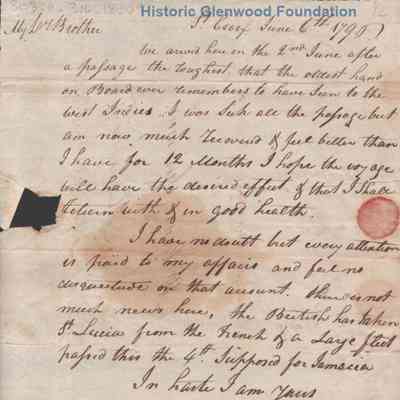 Historic Glenwood Foundation
St Croix June 6th 1796
My Dr Brother
We arived here on the 2nd June after
a passage the toughest that the oldest hand
on Board ever remembers to have seen to the
west Indies. I was Sick all the passage but
am now much recoverd & feel better than
I have for 12 Months I hope the voyage
will have the desired effect & that I shall
return with & in good health.
I have no doubt but every attention
is paid to my affairs and feel no
disquietude on that account. there is not
much news here, the British has taken
St Lucia from the French & a Large fleet
passd this the 4th Supposd for Jamaica
In haste I am yours